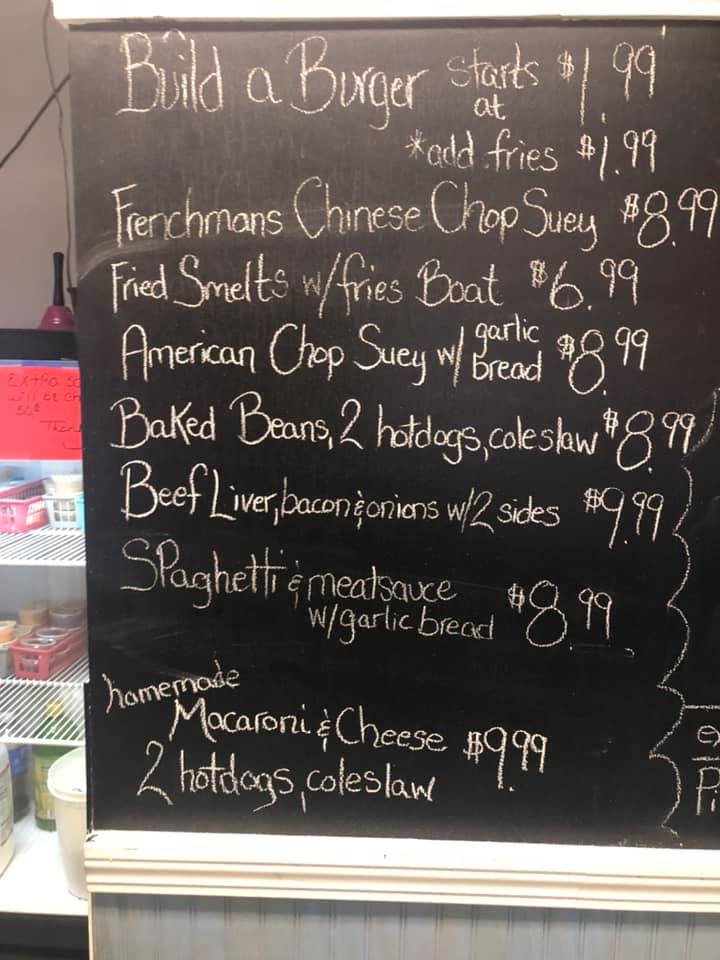 Build a Burger starts at $1.99
*add fries $1.99
Frenchmans Chinese Chop Suey $8.99
Fried Smelts w/fries Boat $6.99
American Chop Suey w/ garlic bread $8.99
Baked Beans, 2 hotdogs, coleslaw $8.99
Beef Liver, bacon & onions w/2 sides $9.99
Spaghetti & meatsauce $8.99
w/garlic bread
homemade
Macaroni & Cheese $9.99
2 hotdogs, coleslaw
Extra
will be
50¢